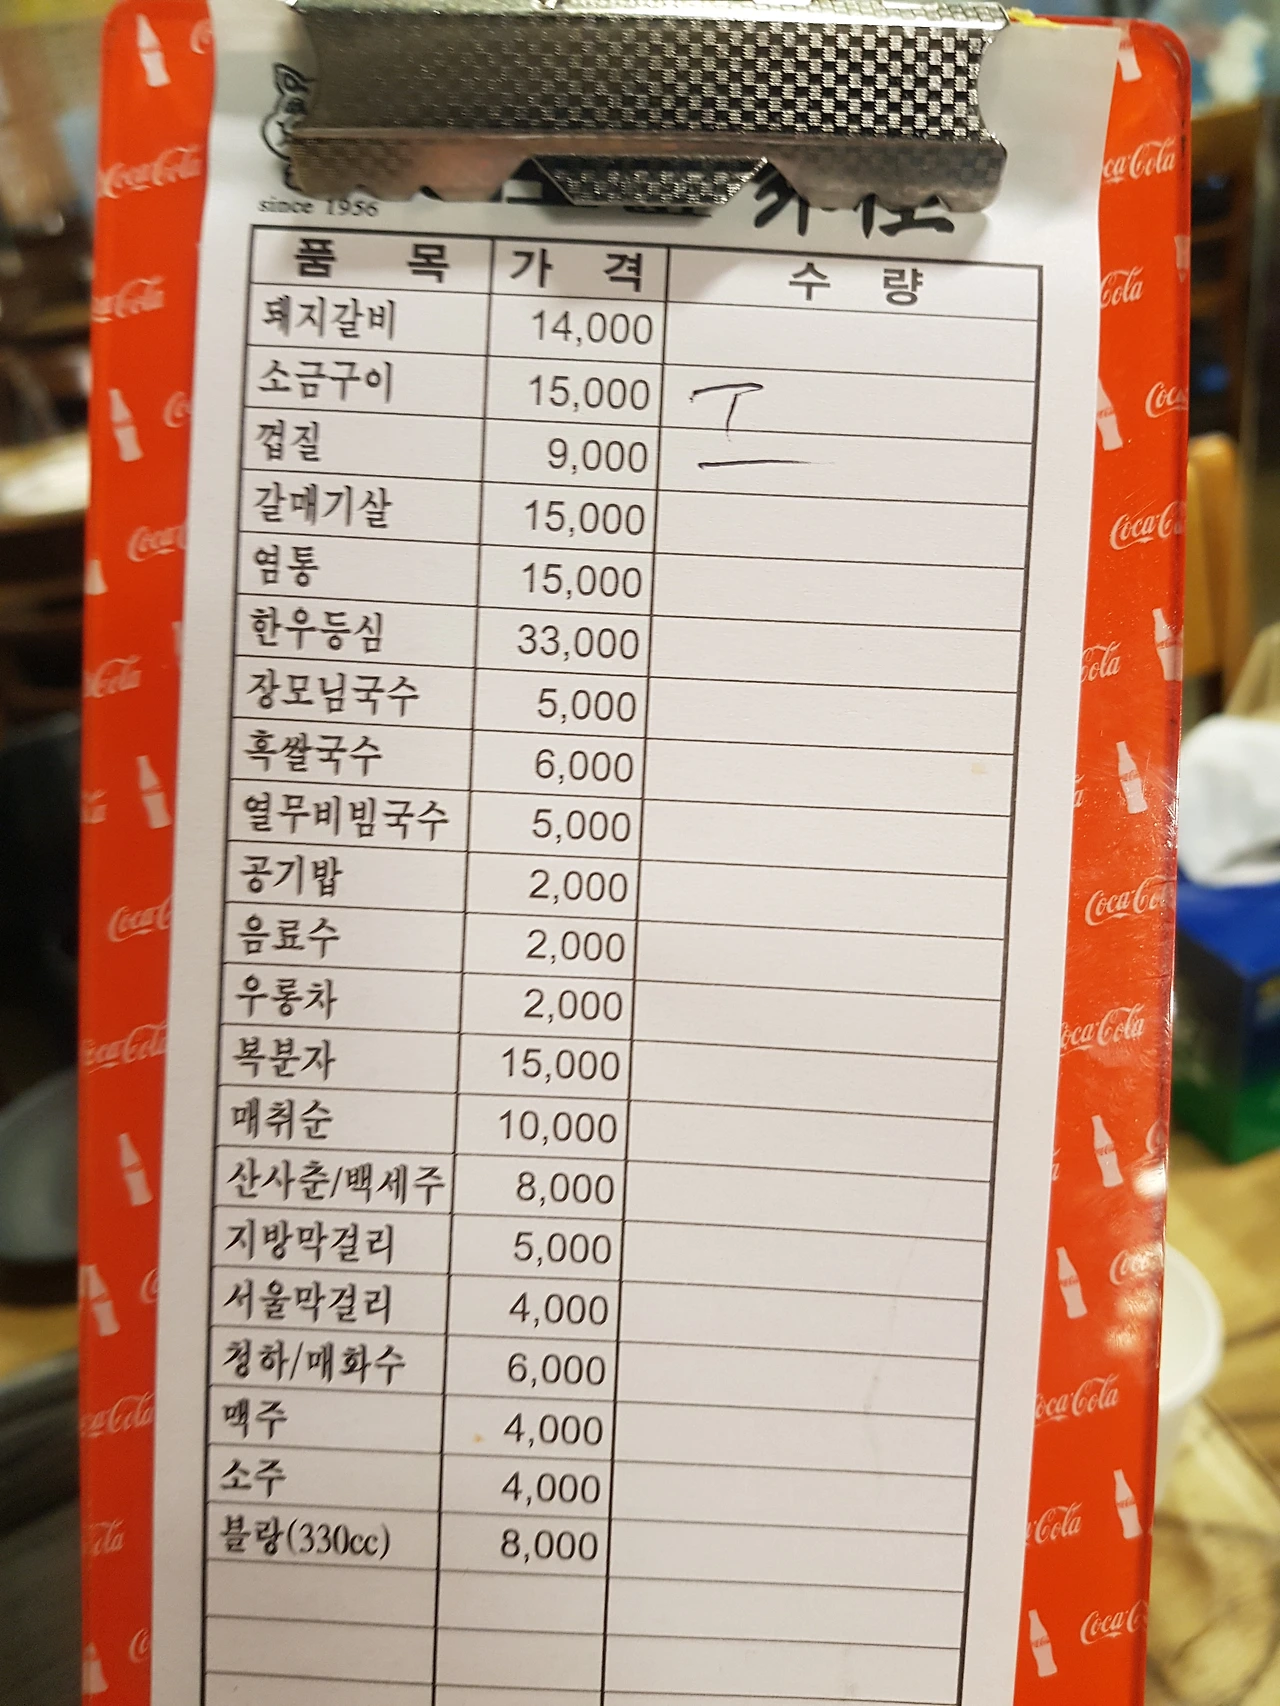 since 1956
품 목 가 격 수 량
돼지갈비 14,000
소금구이 15,000 T
껍질 9,000 一
갈매기살 15,000
염통 15,000
한우등심 33,000
장모님국수 5,000
흑쌀국수 6,000
열무비빔국수 5,000
공기밥 2,000
음료수 2,000
우롱차 2,000
복분자 15,000
매취순 10,000
산사춘/백세주 8,000
지방막걸리 5,000
서울막걸리 4,000
청하/매화수 6,000
맥주 4,000
소주 4,000
블랑(330cc) 8,000
Coca-Cola